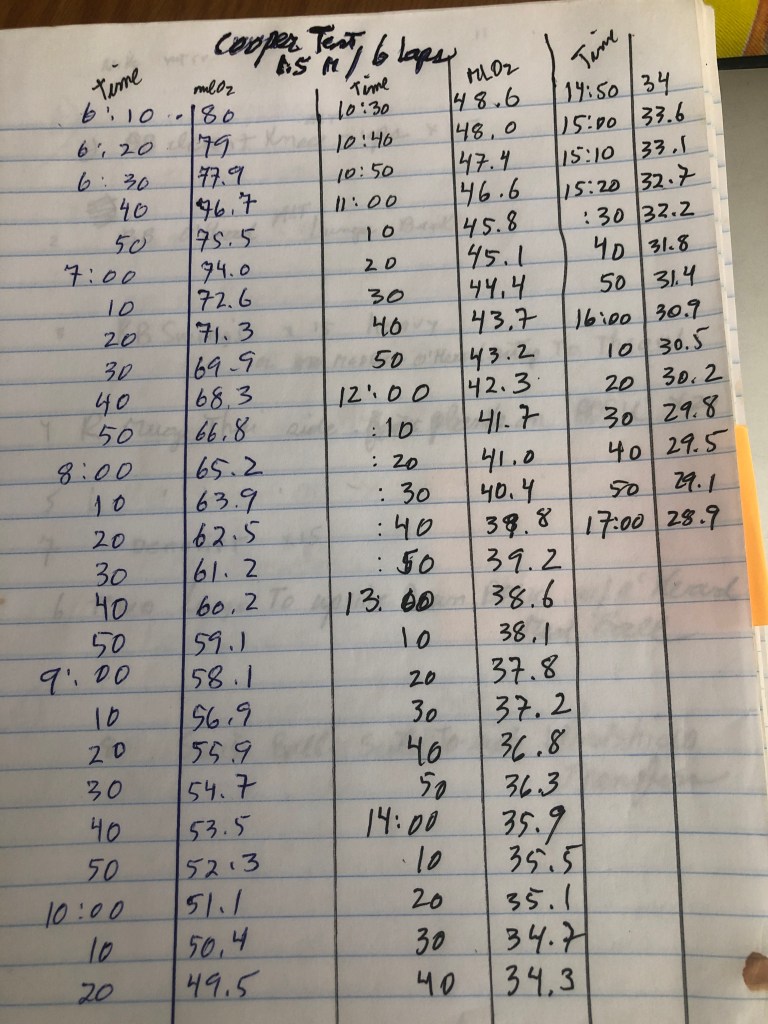 Cooper Test
1.5 M / 6 laps
Time mlO2 Time MLO2 Time
6:10 .. 80 10:30 48.6 14:50 34
6:20 79 10:40 48.0 15:00 33.6
6:30 77.9 10:50 47.4 15:10 33.1
40 76.7 11:00 46.6 15:20 32.7
50 75.5 10 45.8 :30 32.2
7:00 74.0 20 45.1 40 31.8
10 72.6 30 44.4 50 31.4
20 71.3 40 43.7 16:00 30.9
30 69.9 50 43.2 10 30.5
40 68.3 12:00 42.3 20 30.2
50 66.8 :10 41.7 30 29.8
8:00 65.2 :20 41.0 40 29.5
10 63.9 :30 40.4 50 29.1
20 62.5 :40 39.8 17:00 28.9
30 61.2 :50 39.2
40 60.2 13:00 38.6
50 59.1 10 38.1
9:00 58.1 20 37.8
10 56.9 30 37.2
20 55.9 40 36.8
30 54.7 50 36.3
40 53.5 14:00 35.9
50 52.3 10 35.5
10:00 51.1 20 35.1
10 50.4 30 34.7
20 49.5 40 34.3